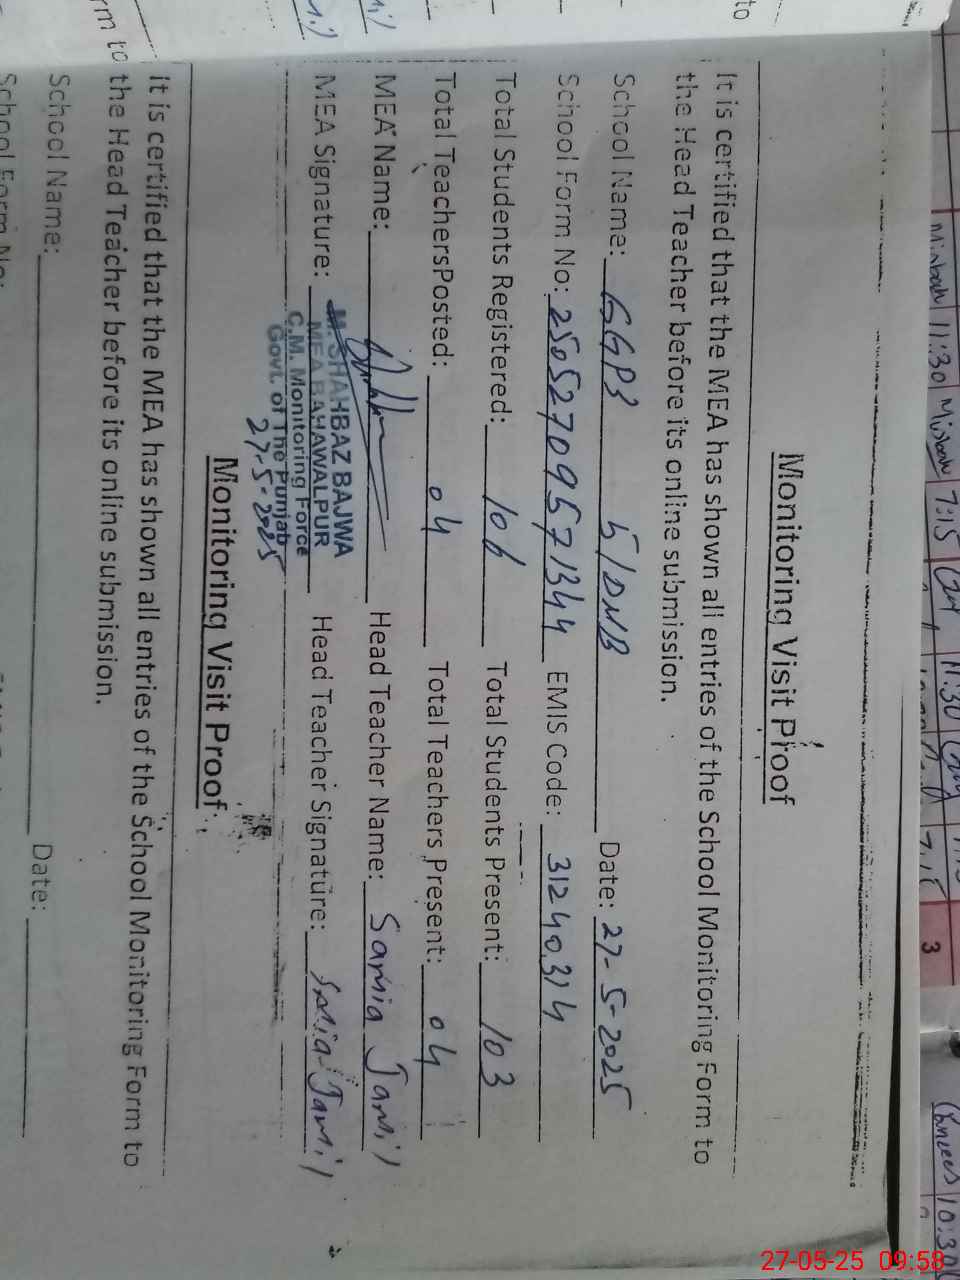 Monitoring Visit Proof
It is certified that the MEA has shown all entries of the School Monitoring Form to
the Head Teacher before its online submission.
School Name: GGPS 5/DNB Date: 27-5-2025
School Form No: 25052709571344 EMIS Code: 31240314
Total Students Registered: 106 Total Students Present: 103
Total TeachersPosted: 04 Total Teachers Present: 04
MEA Name: Head Teacher Name: Samia Jamil
MEA Signature: Head Teacher Signature: Samia Jamil
M. SHAHBAZ BAJWA
MEA BAHAWALPUR
C.M. Monitoring Force
Govt. of The Punjab
27-5-2025
Monitoring Visit Proof
It is certified that the MEA has shown all entries of the School Monitoring Form to
the Head Teacher before its online submission.
School Name: Date:
School Form No:
to
rm to
11:30 7:15 11:30
3
10:30
27-05-25 09:58